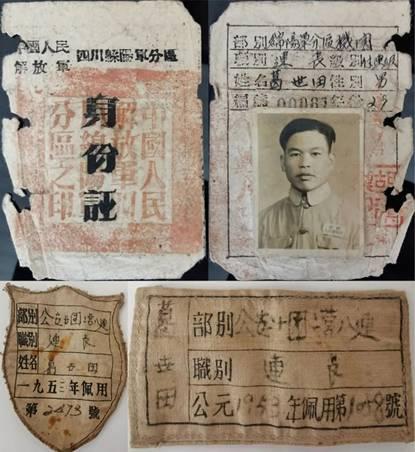 中國人民
解放軍
四川綿陽軍分區
身份証
中國人民
解放軍四川
綿陽軍
分區之印
部別綿陽軍分區機關
職別連長級別
姓名葛世田性別男
編號00081年齡23
部別公安廿團二營八連
職別連長
姓名葛世田
一九五三年佩用
第2473號
葛世田
部別公安十團二營八連
職別連長
公元1953年佩用第1058號